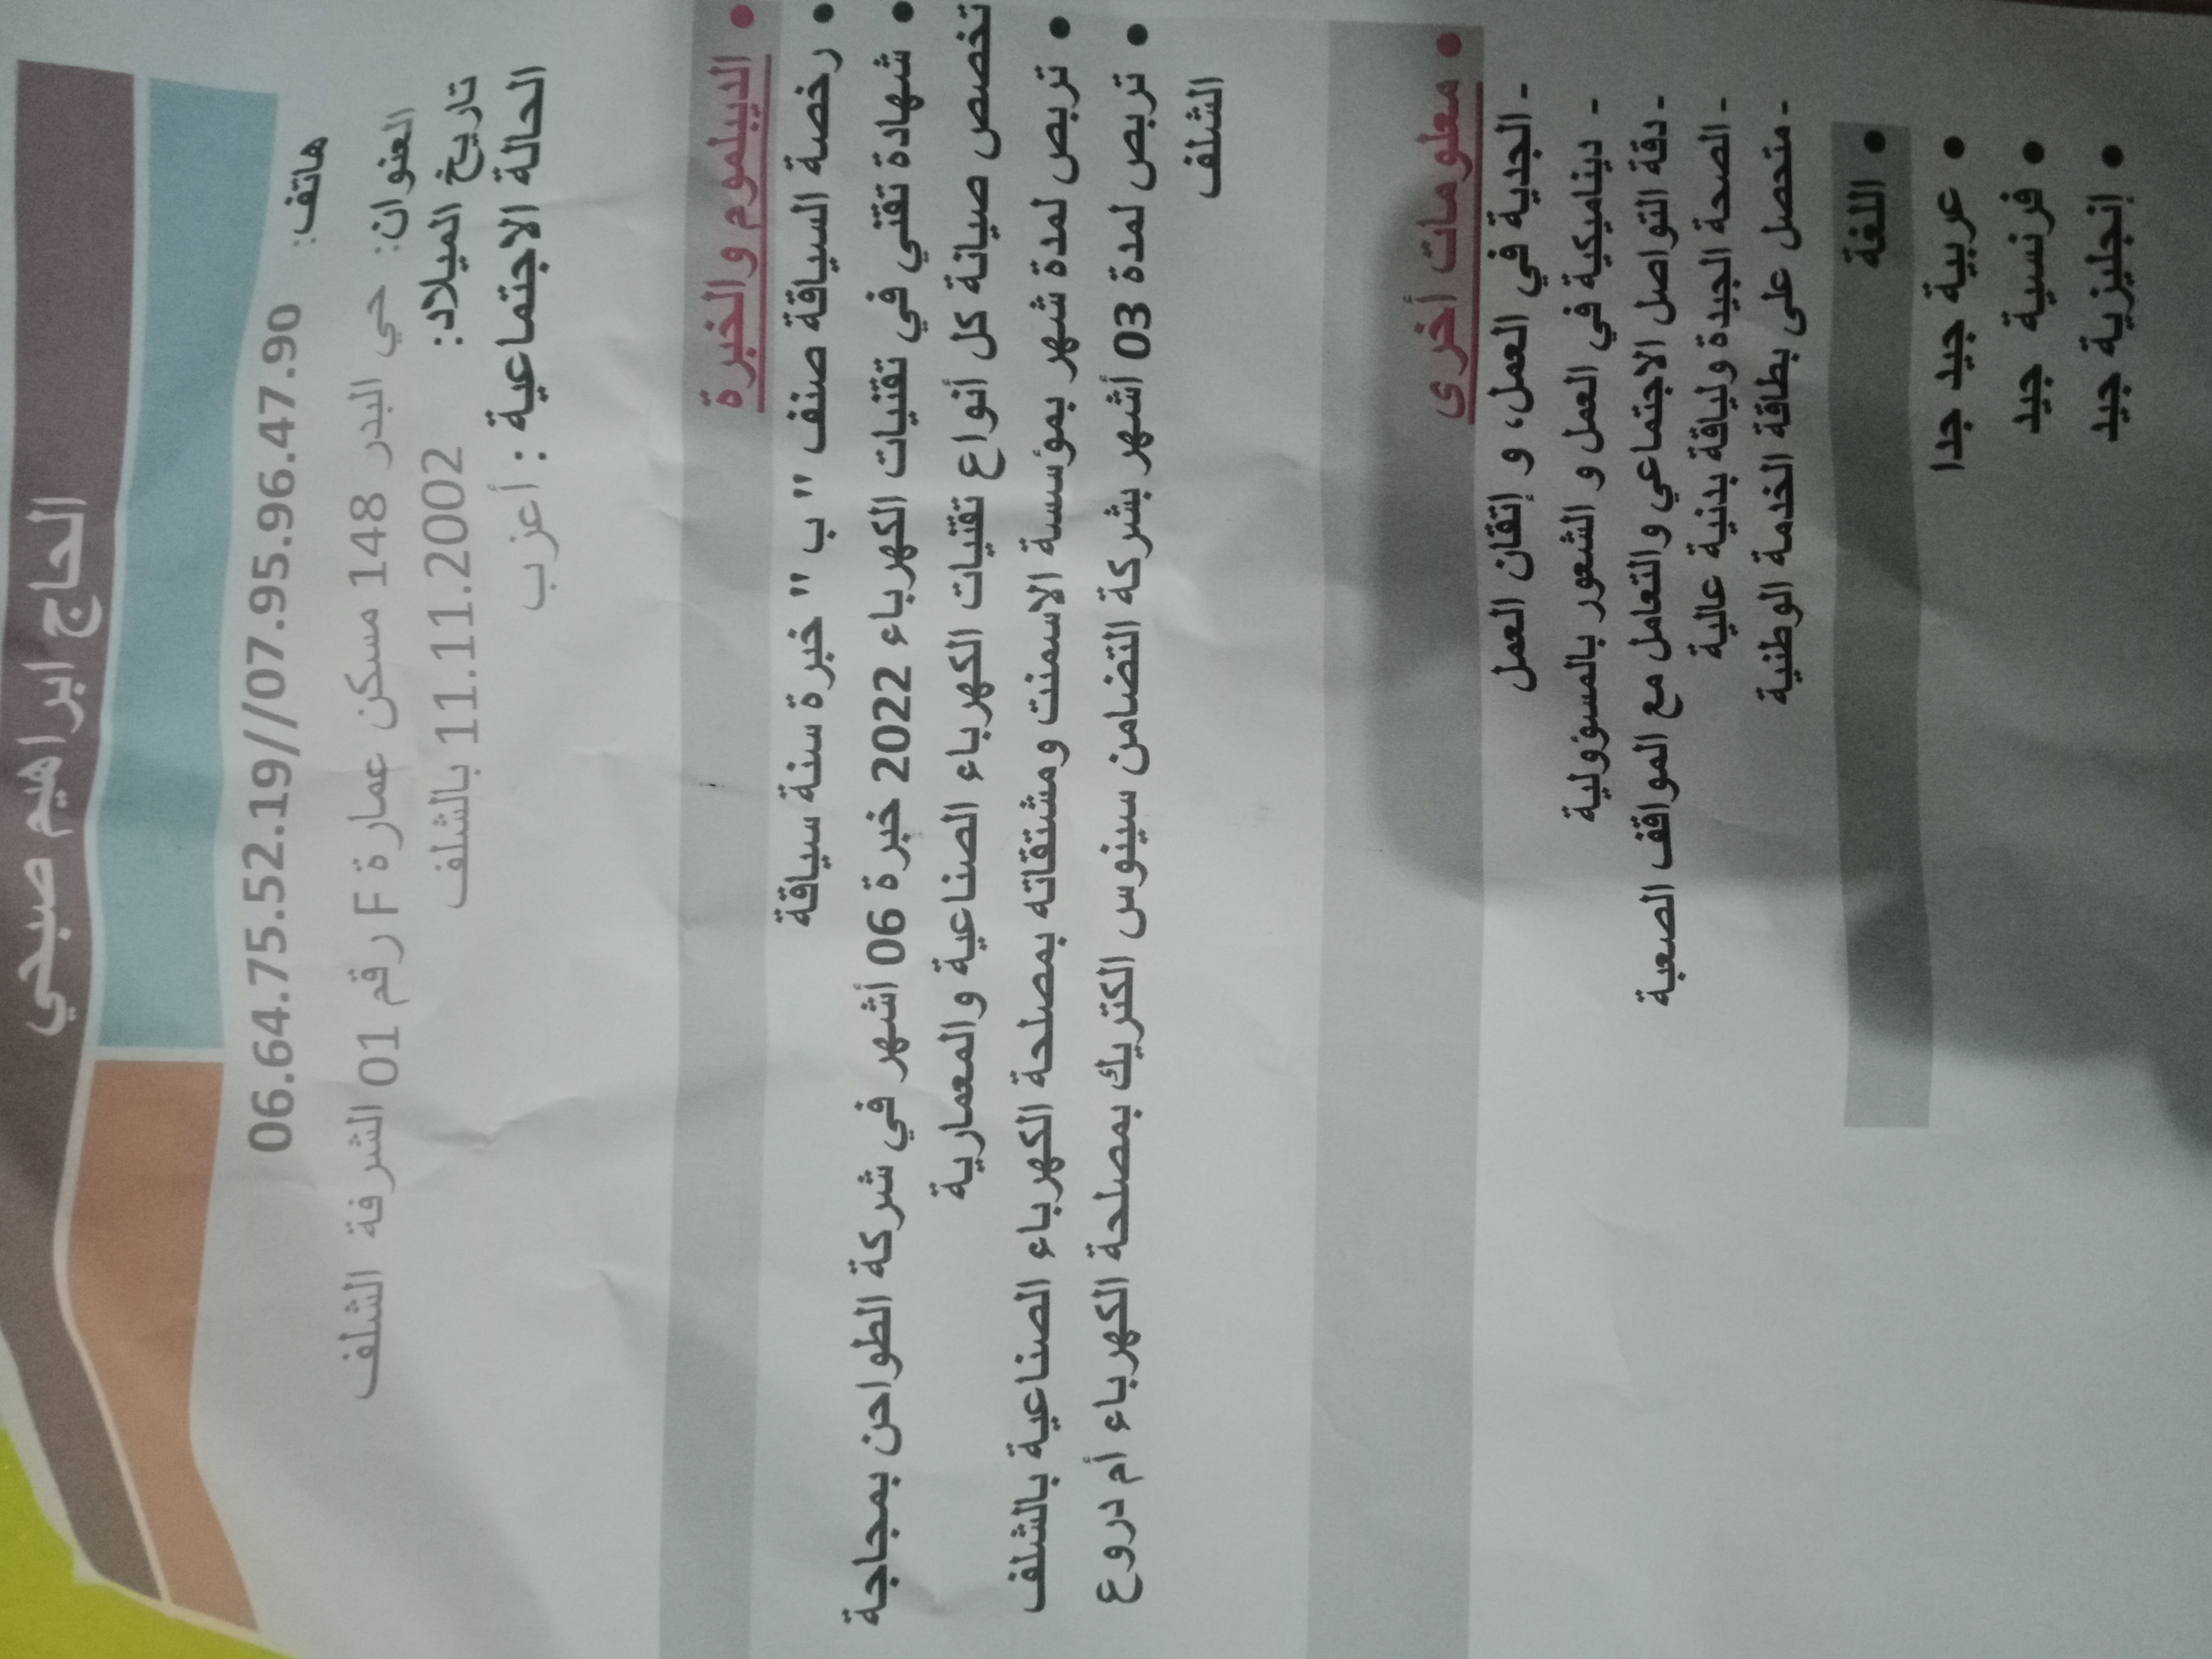 الحاج ابراهيم صبحي
هاتف: 06.64.75.52.19//07.95.96.47.90
العنوان: حي البدر 148 مسكن عمارة F رقم 01 الشرفة الشلف
تاريخ الميلاد: 11.11.2002 بالشلف
الحالة الاجتماعية : أعزب
• الديبلموم والخبرة
• رخصة السياقة صنف " ب " خبرة سنة سياقة
• شهادة تقني في تقنيات الكهرباء 2022 خبرة 06 أشهر في شركة الطواحن بمجاجة
تخصص صيانة كل أنواع تقنيات الكهرباء الصناعية والمعمارية
• تربص لمدة شهر بمؤسسة الاسمنت ومشتقاته بمصلحة الكهرباء الصناعية بالشلف
• تربص لمدة 03 أشهر بشركة التضامن سينوس الكتريك بمصلحة الكهرباء أم دروع
الشلف
• معلومات أخرى
- الجدية في العمل، و إتقان العمل
- ديناميكية في العمل و الشعور بالمسؤولية
- دقة التواصل الاجتماعي والتعامل مع المواقف الصعبة
- الصحة الجيدة ولياقة بدنية عالية
- متحصل على بطاقة الخدمة الوطنية
• اللغة
• عربية جيد جدا
• فرنسية جيد
• إنجليزية جيد